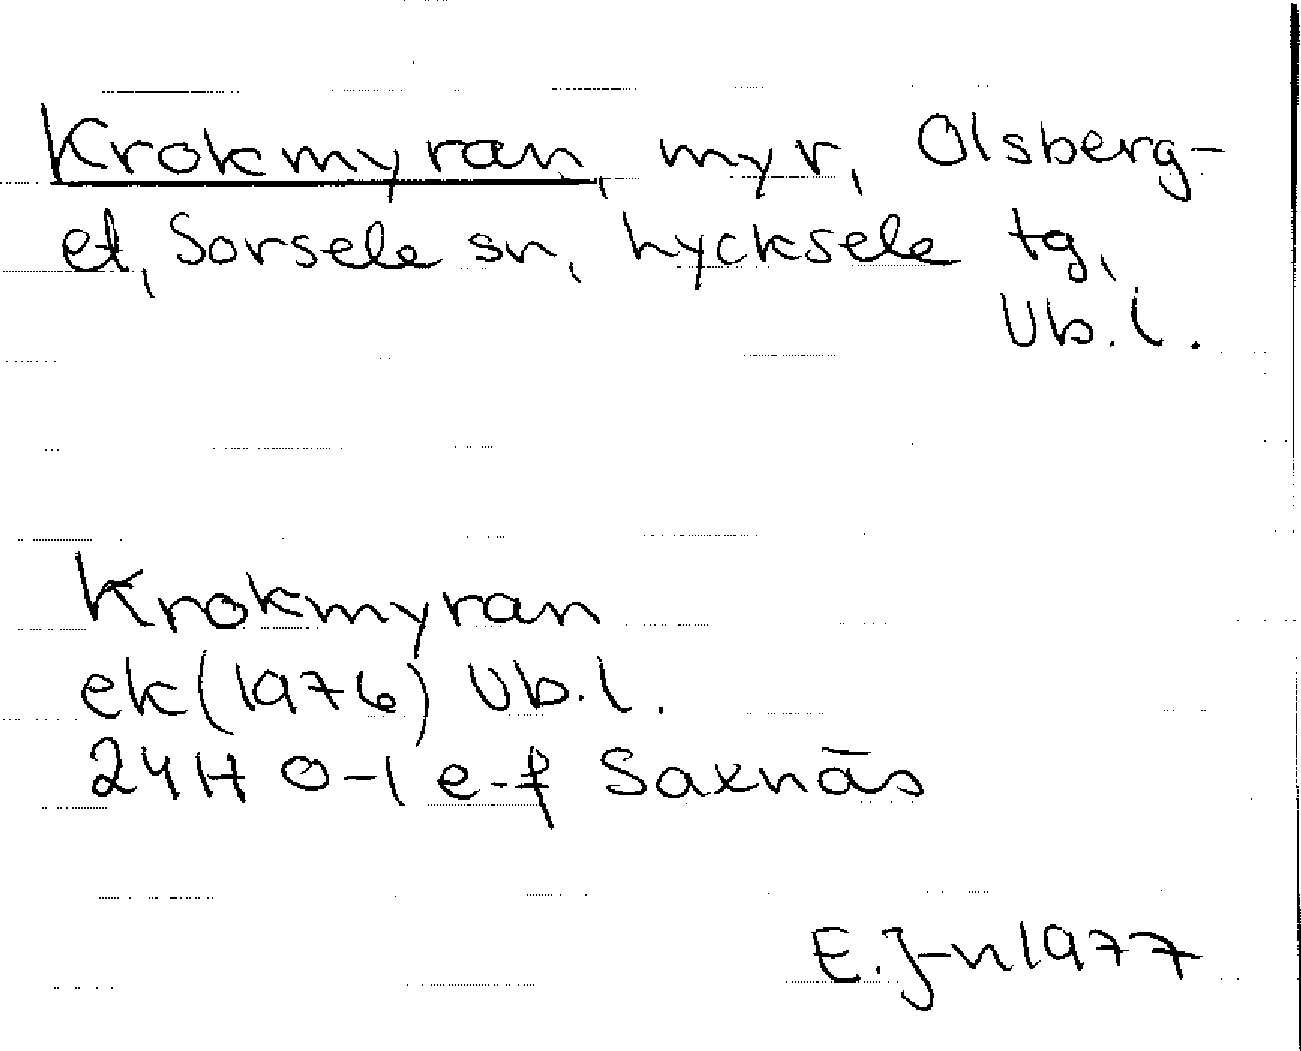 Krokmyran, myr, Olsberg-
et, Sorsele sn, Lycksele tg,
Vb. l.
Krokmyran
ek (1976) Vb. l.
24H 0-1 e-f Saxnäs
E. J-n 1977